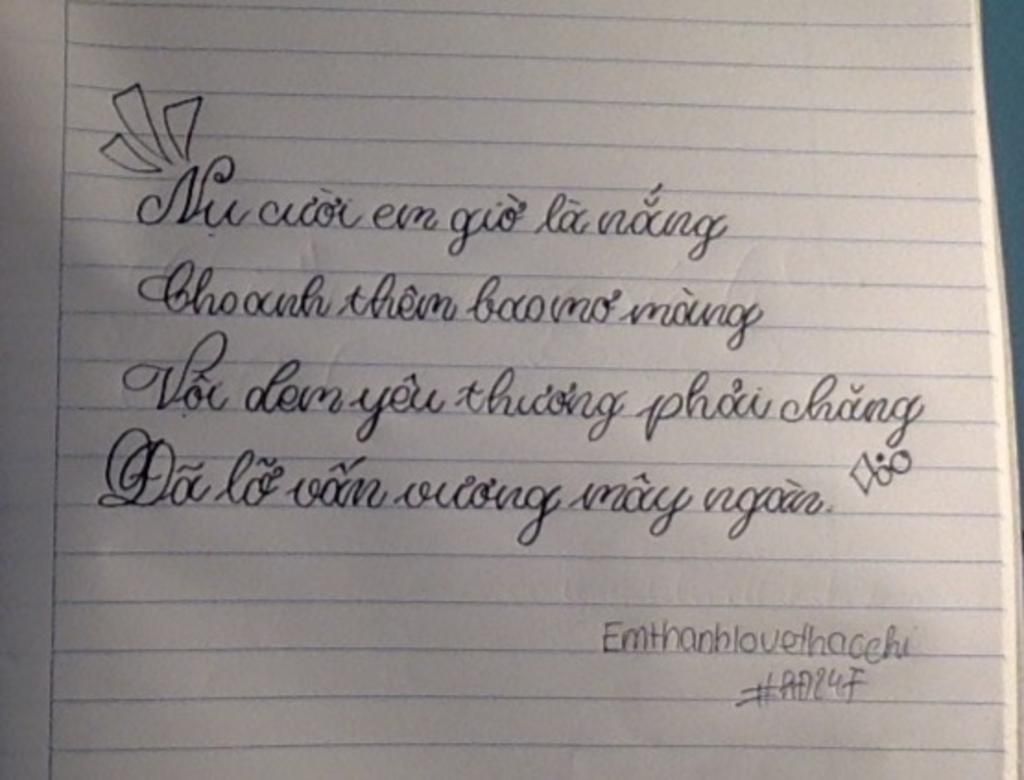 Nụ cười em giờ là nắng
Cho anh thêm bao mơ màng
Vội đem yêu thương phải chăng
Đã lỡ vấn vương mây ngàn.
Emthanhlovethacchi
#AĐ24F